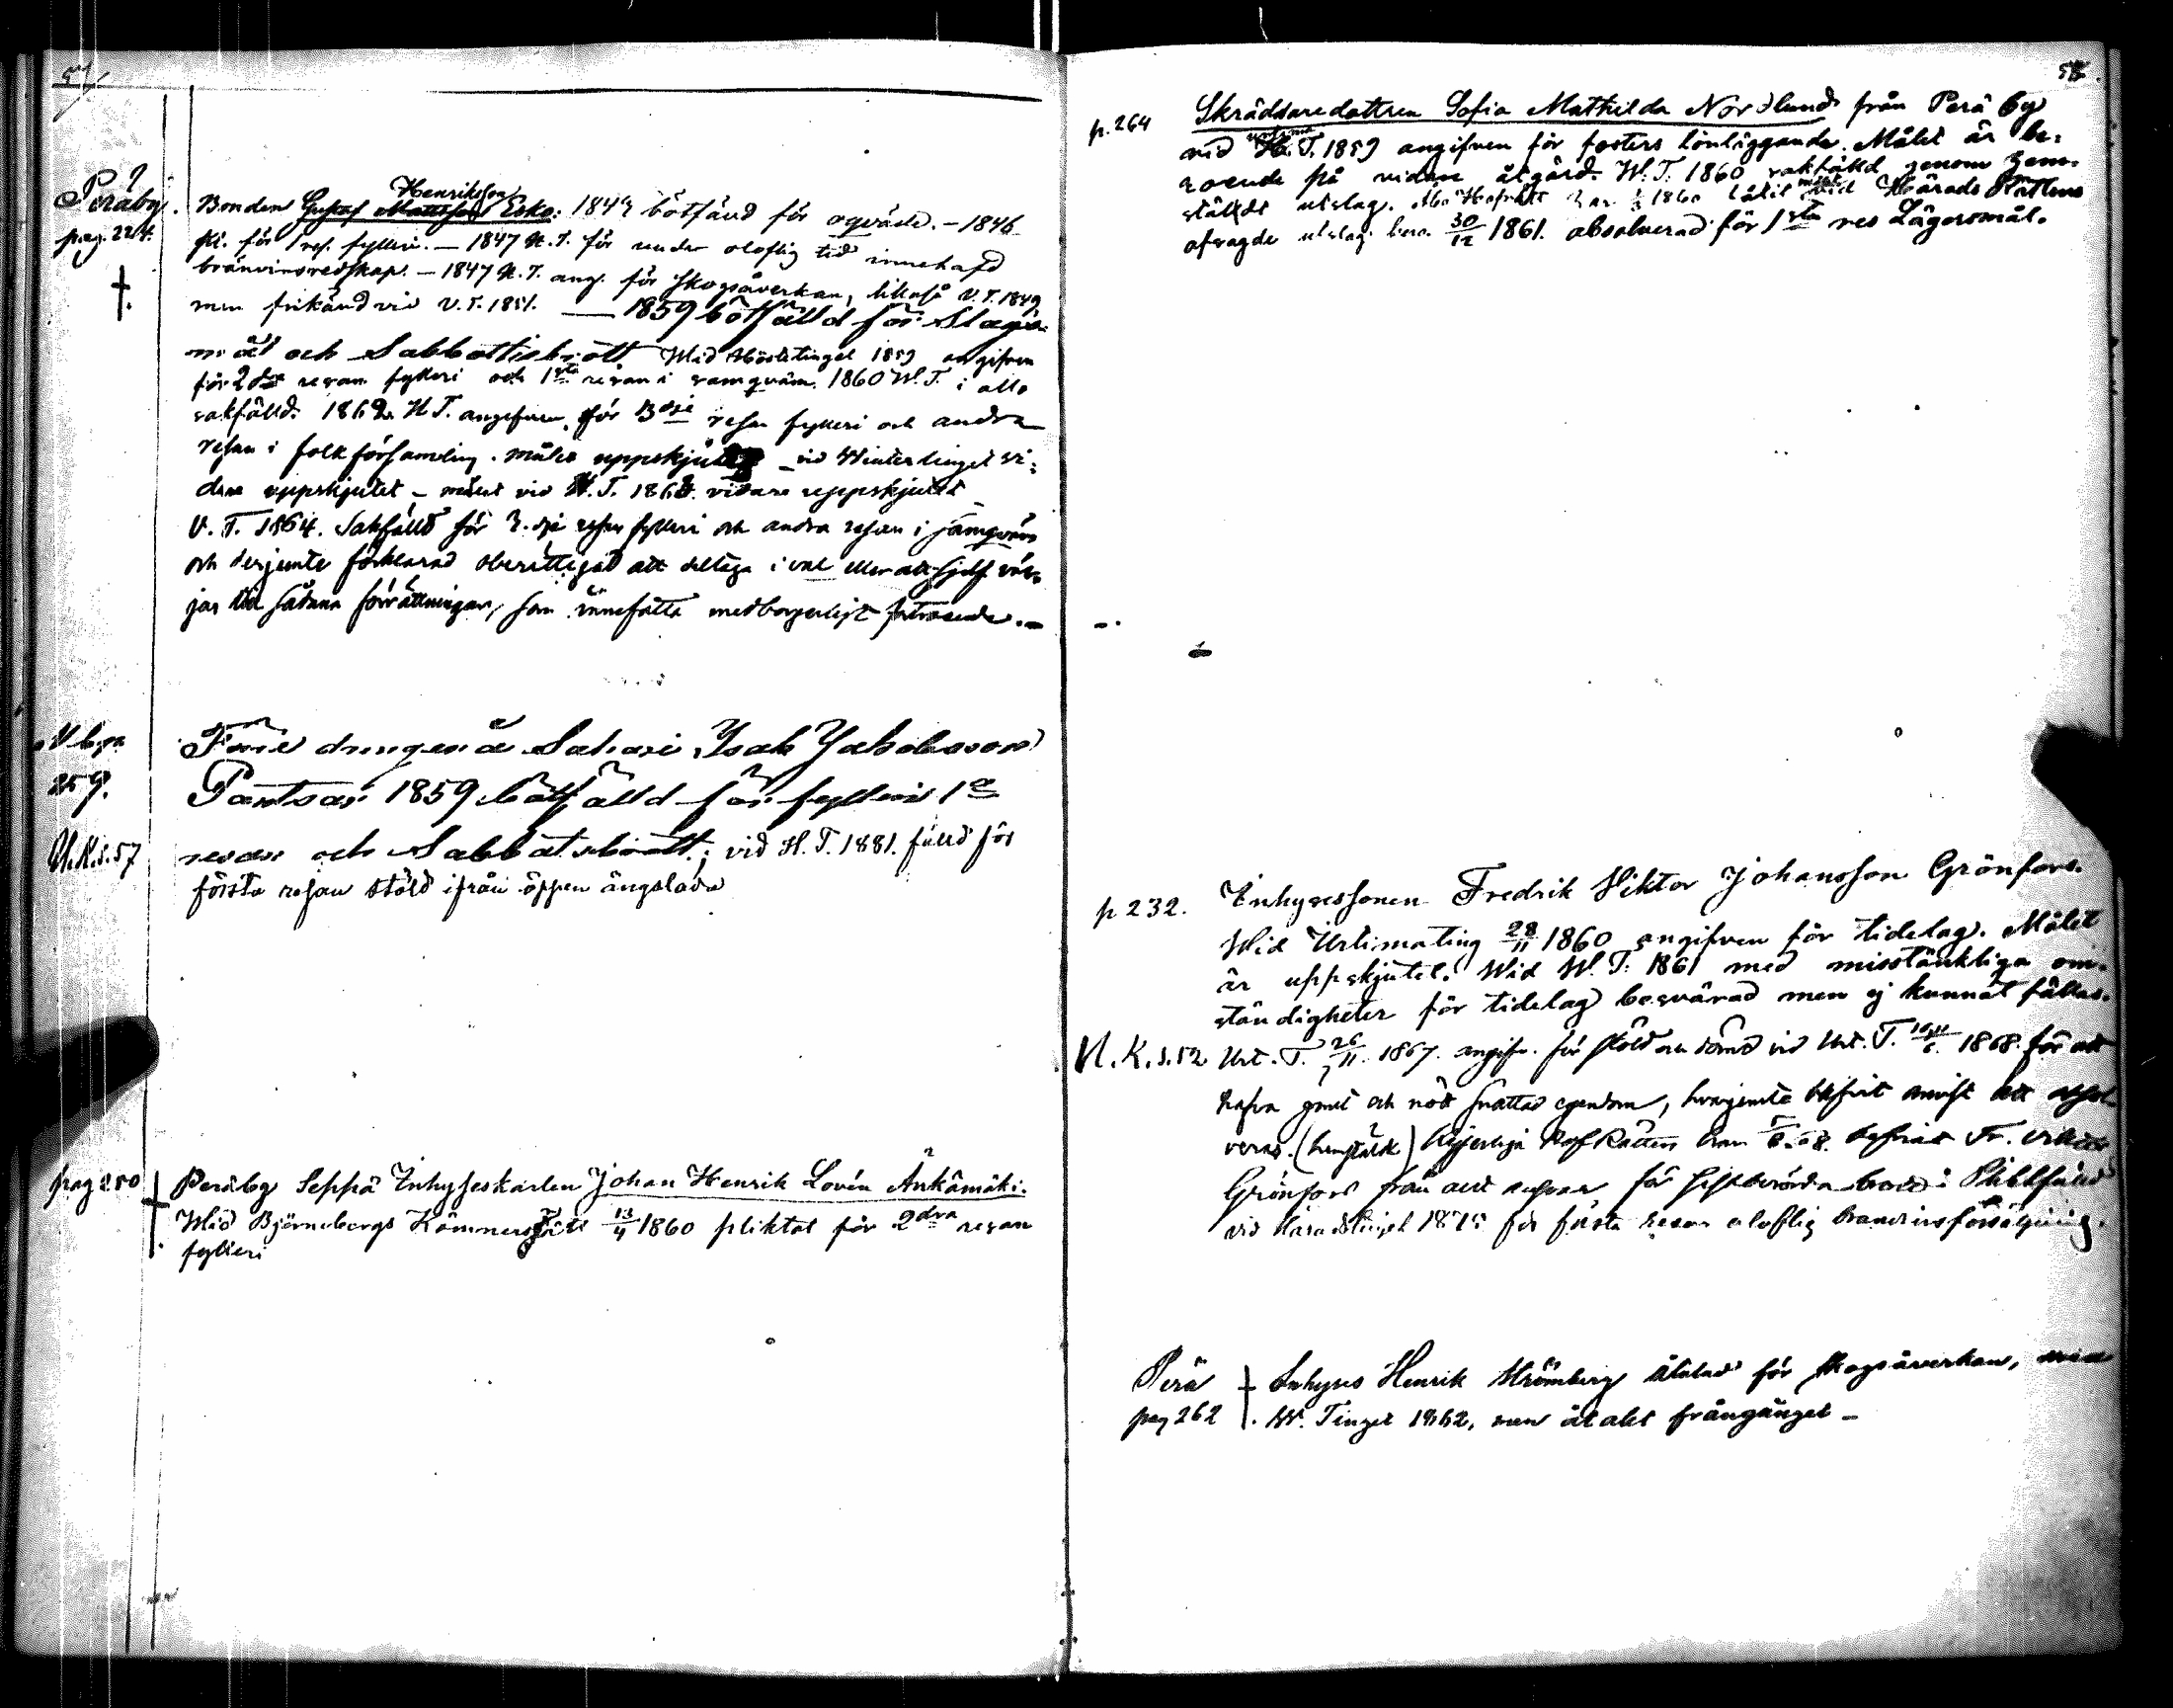 57
Peräby.
pag. 224.
†.
Henriksson
Bonden Gustaf Mattsson Esko: 1844 bötfäld för oqväde. – 1846
pl. för 1 res. fylleri. – 1847 H.T. för under oloflig tid innehafd
bränvinsredskap. – 1847 H.T. ang. för skogsåverkan, likaså V.T. 1849
men frikänd vid V.T. 1851. — 1859 bötfälld för Slags-
mål och Sabbatsbrott Wid Höstetinget 1859 angifven
för 2dra resan fylleri och 1sta resan i samqväm. 1860 W.T. i allo
sakfälld. 1862 H.T. angifven för 3dje resan fylleri och andra
resan i folkförsamling. målet uppskjutet – vid Wintertinget vi-
dare uppskjutet – målet vid H.T. 1863. vidare uppskjutet –
V. T. 1864. Sakfälld för 3. dje resan fylleri och andra resan i samqväm
och derjemte förklarad oberättigad att deltaga i val eller att sjelf väl-
jas till sådana förrättningar, som innefatta medborgerligt förtroende. –
257.
N.K.s.57
Förre drängen å Sahari Isak Jakobsson
Pantsar 1859 bötfälld för fylleri 1a
resan och Sabbatsbrott; vid H.T. 1881. fälld för
första resan stöld ifrån öppen ängslada
pag 250
†.
Peräby Seppä Inhyseskarlen Johan Henrik Lovén Änkämäki.
Wid Björneborgs Kämnersrätt 13/4 1860 pliktat för 2dra resan
fylleri
58.
p. 264
Skräddaredottren Sofia Mathilda Nordlund från Perä by
vid H.T. 1859 angifven för fosters lönläggande. Målet är be-
roende på vidare åtgärd. W.T. 1860 sakfälld genom hem-
ställdt utslag. Åbo Hofrätt har 1860 låtit Härads Rättens
afsagde utslag bero. 30/12 1861. absolverad för 1sta res Lägersmål.
p 232.
Inhysessonen Fredrik Viktor Johansson Grönfors.
Wid Urtimating 28/11 1860 angifven för tidelag. Målet
är uppskjutet. Wid W.T. 1861 med misstänkliga om-
ständigheter för tidelag besvärad men ej kunnat fällas.
N.K.s.52
Urt. T. 26/11. 1867. angifv. för stöld och dömd vid Urt. T. 1868. för att
hafva gömt och nött snattad egendom,
veras. Kejserliga HofRätten
Grönfors från
vid Häradstinget 1875 för första resan oloflig bränvinsförsäljning.
Perä
pag 262
†.
Inhyses Henrik Strömberg åtalad för skogsåverkan, vid
W. Tinget 1862, men åtalet frångånget –